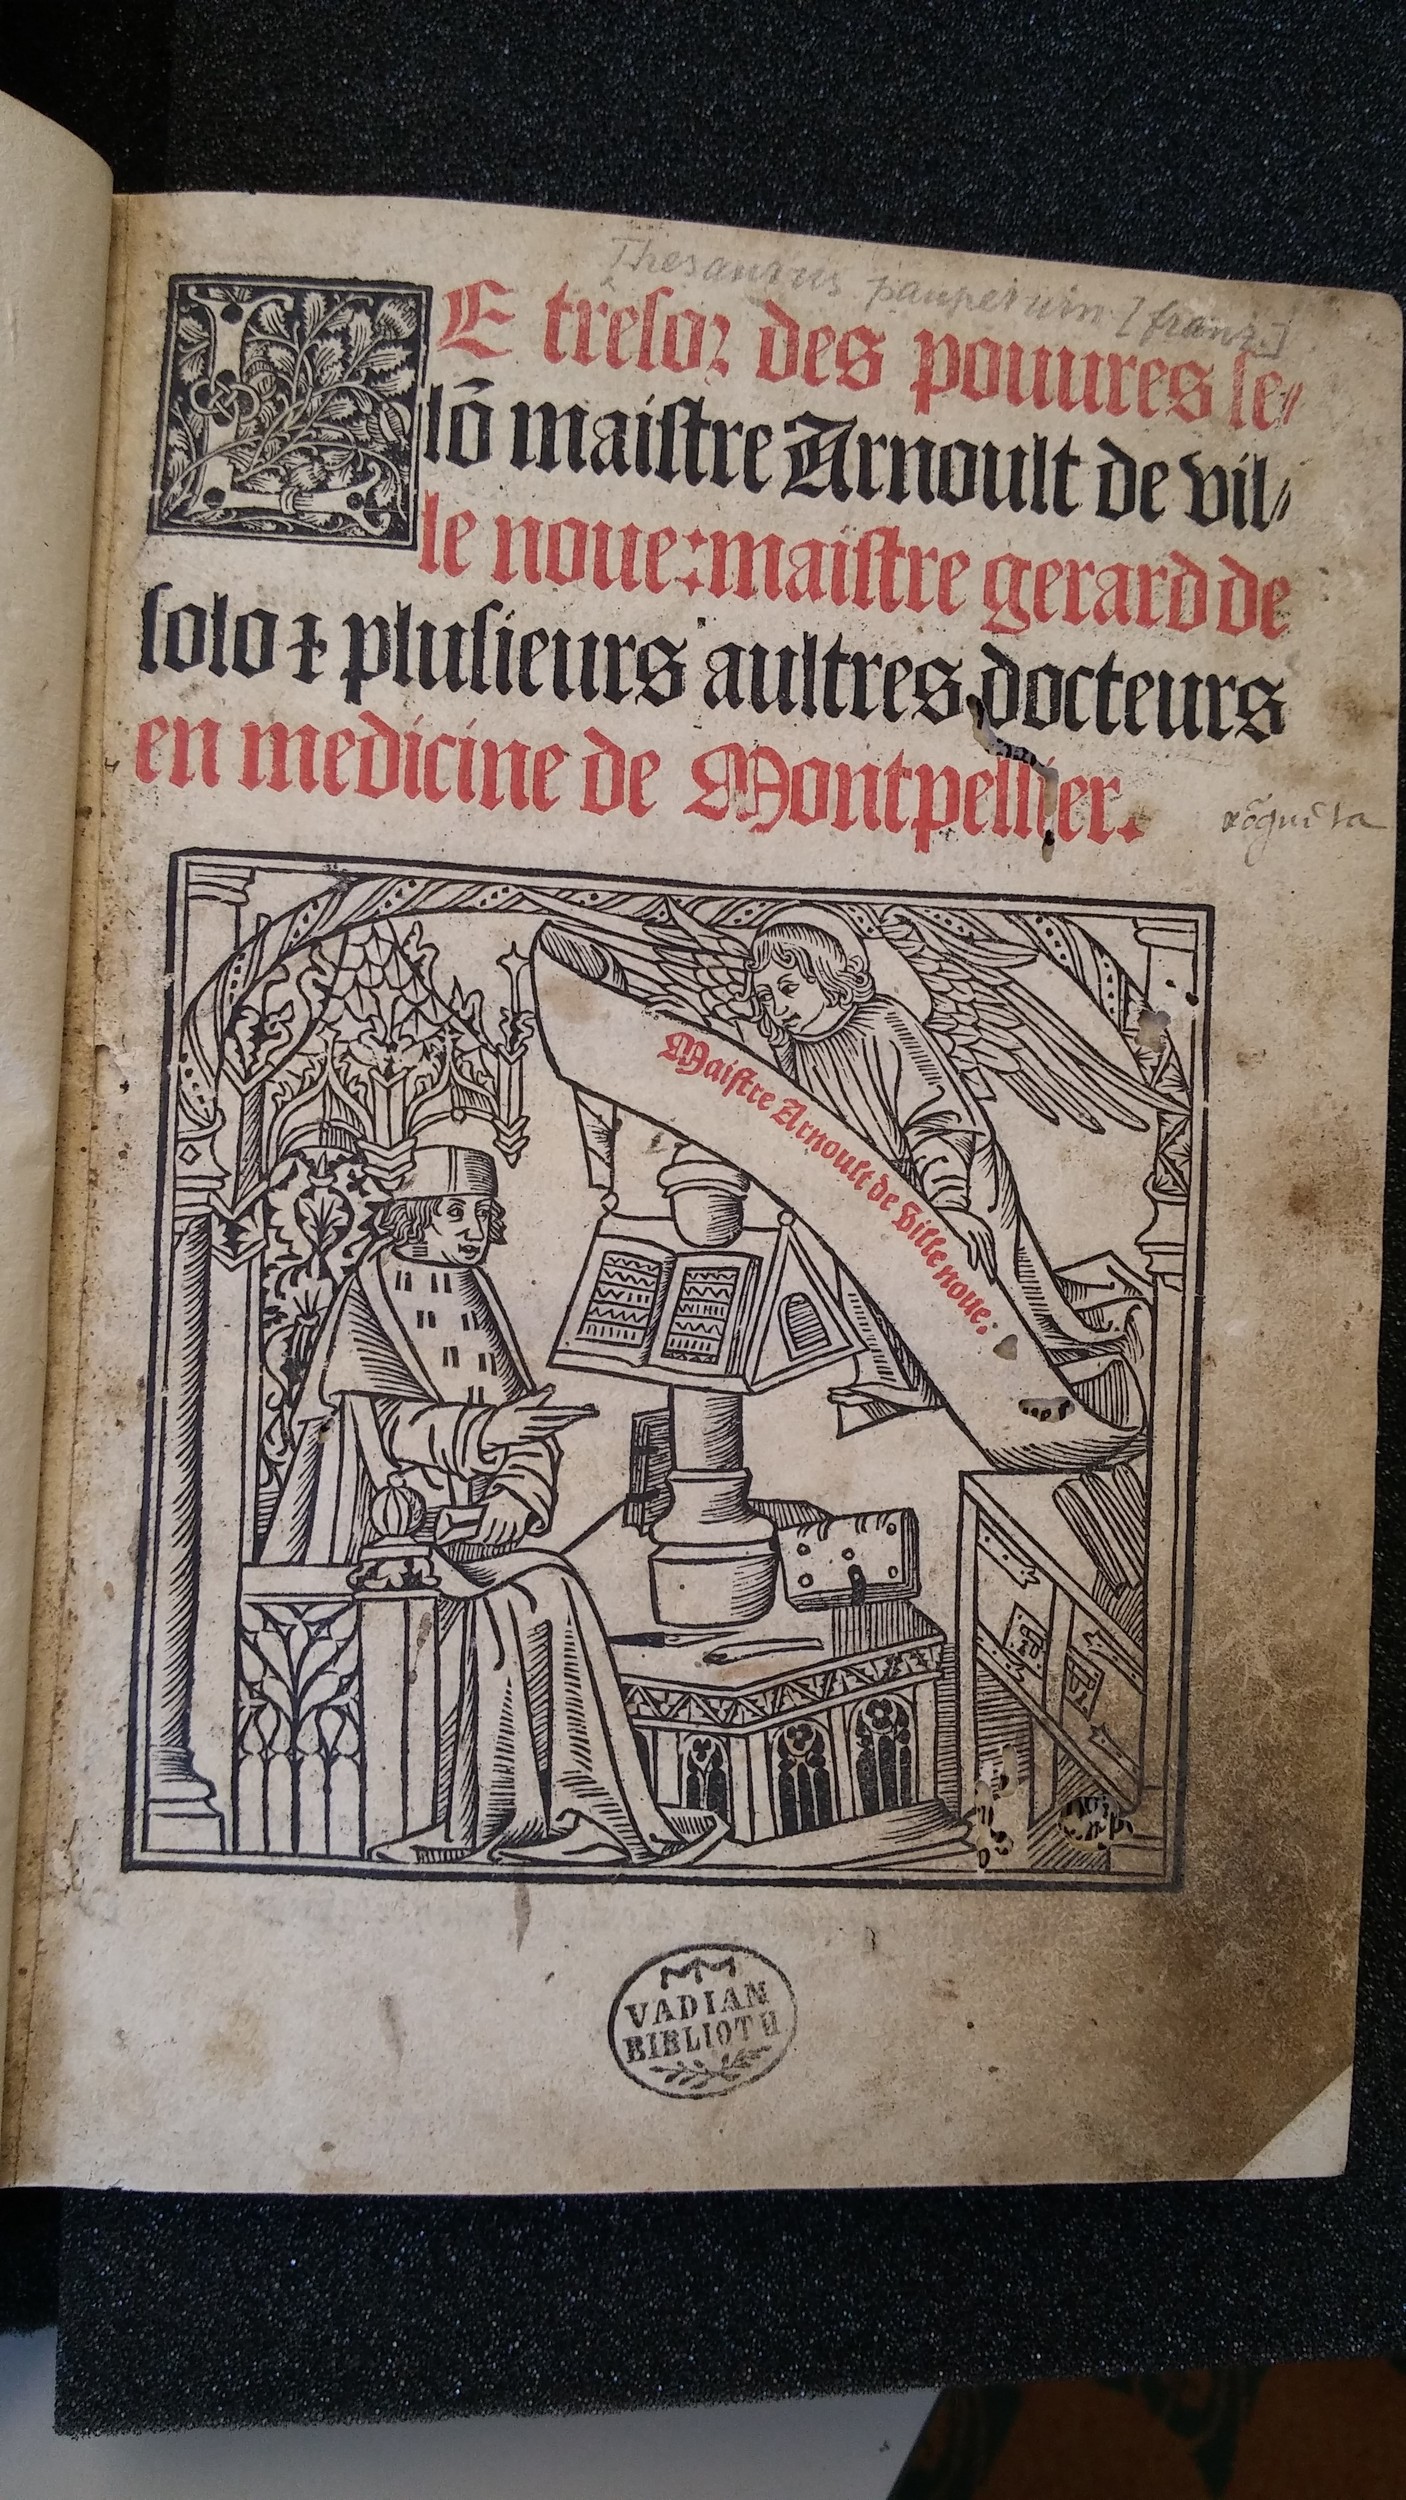 Thesaurus pauperum [franz.]
LE tresor des pouures se⸗
lō maistre Arnoult de vil⸗
le noue: maistre gerard de
solo ⁊ plusieurs aultres docteurs
en medicine de Montpellier.
Maistre Arnoult de Ville noue.
VADIAN
BIBLIOTH